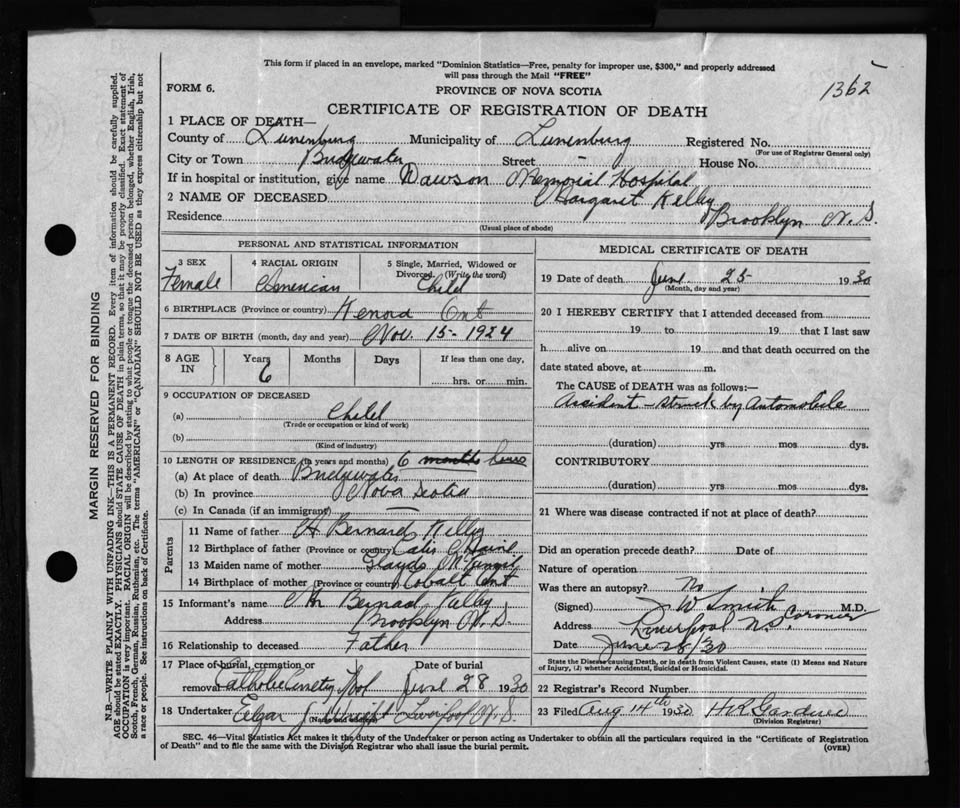 This form if placed in an envelope, marked "Dominion Statistics—Free, penalty for improper use, $300," and properly addressed
will pass through the Mail "FREE"
1362
FORM 6.
PROVINCE OF NOVA SCOTIA
CERTIFICATE OF REGISTRATION OF DEATH
1 PLACE OF DEATH—
County of Lunenburg Municipality of Lunenburg Registered No.
(For use of Registrar General only)
City or Town Bridgewater Street - House No.
If in hospital or institution, give name Dawson Memorial Hospital
2 NAME OF DECEASED Margaret Kelley
Residence Brooklyn N. S.
(Usual place of abode)
PERSONAL AND STATISTICAL INFORMATION
3 SEX
Female
4 RACIAL ORIGIN
American
5 Single, Married, Widowed or
Divorced. (Write the word)
Child
6 BIRTHPLACE (Province or country) Kenora Ont
7 DATE OF BIRTH (month, day and year) Nov. 15 - 1924
8 AGE IN
Years Months Days If less than one day,
6
hrs. or min.
9 OCCUPATION OF DECEASED
(a) Child
(Trade or occupation or kind of work)
(b)
(Kind of industry)
10 LENGTH OF RESIDENCE (in years and months) 6 months
(a) At place of death Bridgewater
(b) In province Nova Scotia
(c) In Canada (if an immigrant) —
Parents
11 Name of father H Bernard Kelley
12 Birthplace of father (Province or country)
13 Maiden name of mother Gladys
14 Birthplace of mother (Province or country) Cobalt Ont
15 Informant's name Bernard Kelley
Address Brooklyn N. S.
16 Relationship to deceased Father
17 Place of burial, cremation or Date of burial
removal Catholic Cemetery June 28 1930
18 Undertaker Edgar J Liverpool N. S.
(Name and address)
MEDICAL CERTIFICATE OF DEATH
19 Date of death June 25 1930
(Month, day and year)
20 I HEREBY CERTIFY that I attended deceased from
19 to 19 that I last saw
h alive on 19 and that death occurred on the
date stated above, at m.
The CAUSE OF DEATH was as follows:—
Accident - struck by Automobile
(duration) yrs. mos. dys.
CONTRIBUTORY
(duration) yrs. mos. dys.
21 Where was disease contracted if not at place of death?
Did an operation precede death? Date of
Nature of operation
Was there an autopsy? No
(Signed) J W Smith Coroner M.D.
Address Liverpool N.S.
Date June 28/30
State the Disease causing Death, or in death from Violent Causes, state (1) Means and Nature
of Injury, (2) whether Accidental, Suicidal or Homicidal.
22 Registrar's Record Number
23 Filed Aug 14th 1930 H R Gardner
(Division Registrar)
SEC. 46—Vital Statistics Act makes it the duty of the Undertaker or person acting as Undertaker to obtain all the particulars required in the "Certificate of Registration
of Death" and to file the same with the Division Registrar who shall issue the burial permit.
(OVER)
MARGIN RESERVED FOR BINDING
N.B.—WRITE PLAINLY WITH UNFADING INK—THIS IS A PERMANENT RECORD. Every item of information should be carefully supplied.
AGE should be stated EXACTLY. PHYSICIANS should STATE CAUSE OF DEATH in plain terms, so that it may be properly classified. Exact statement of
OCCUPATION is very important. RACIAL ORIGIN will be described by stating to what people or tongue the deceased person belonged, whether English, Irish,
Scotch, French, German, Russian, Ruthenian, etc. The terms "AMERICAN" or "CANADIAN" SHOULD NOT BE USED as they express citizenship but not
a race or people. See instructions on back of Certificate.